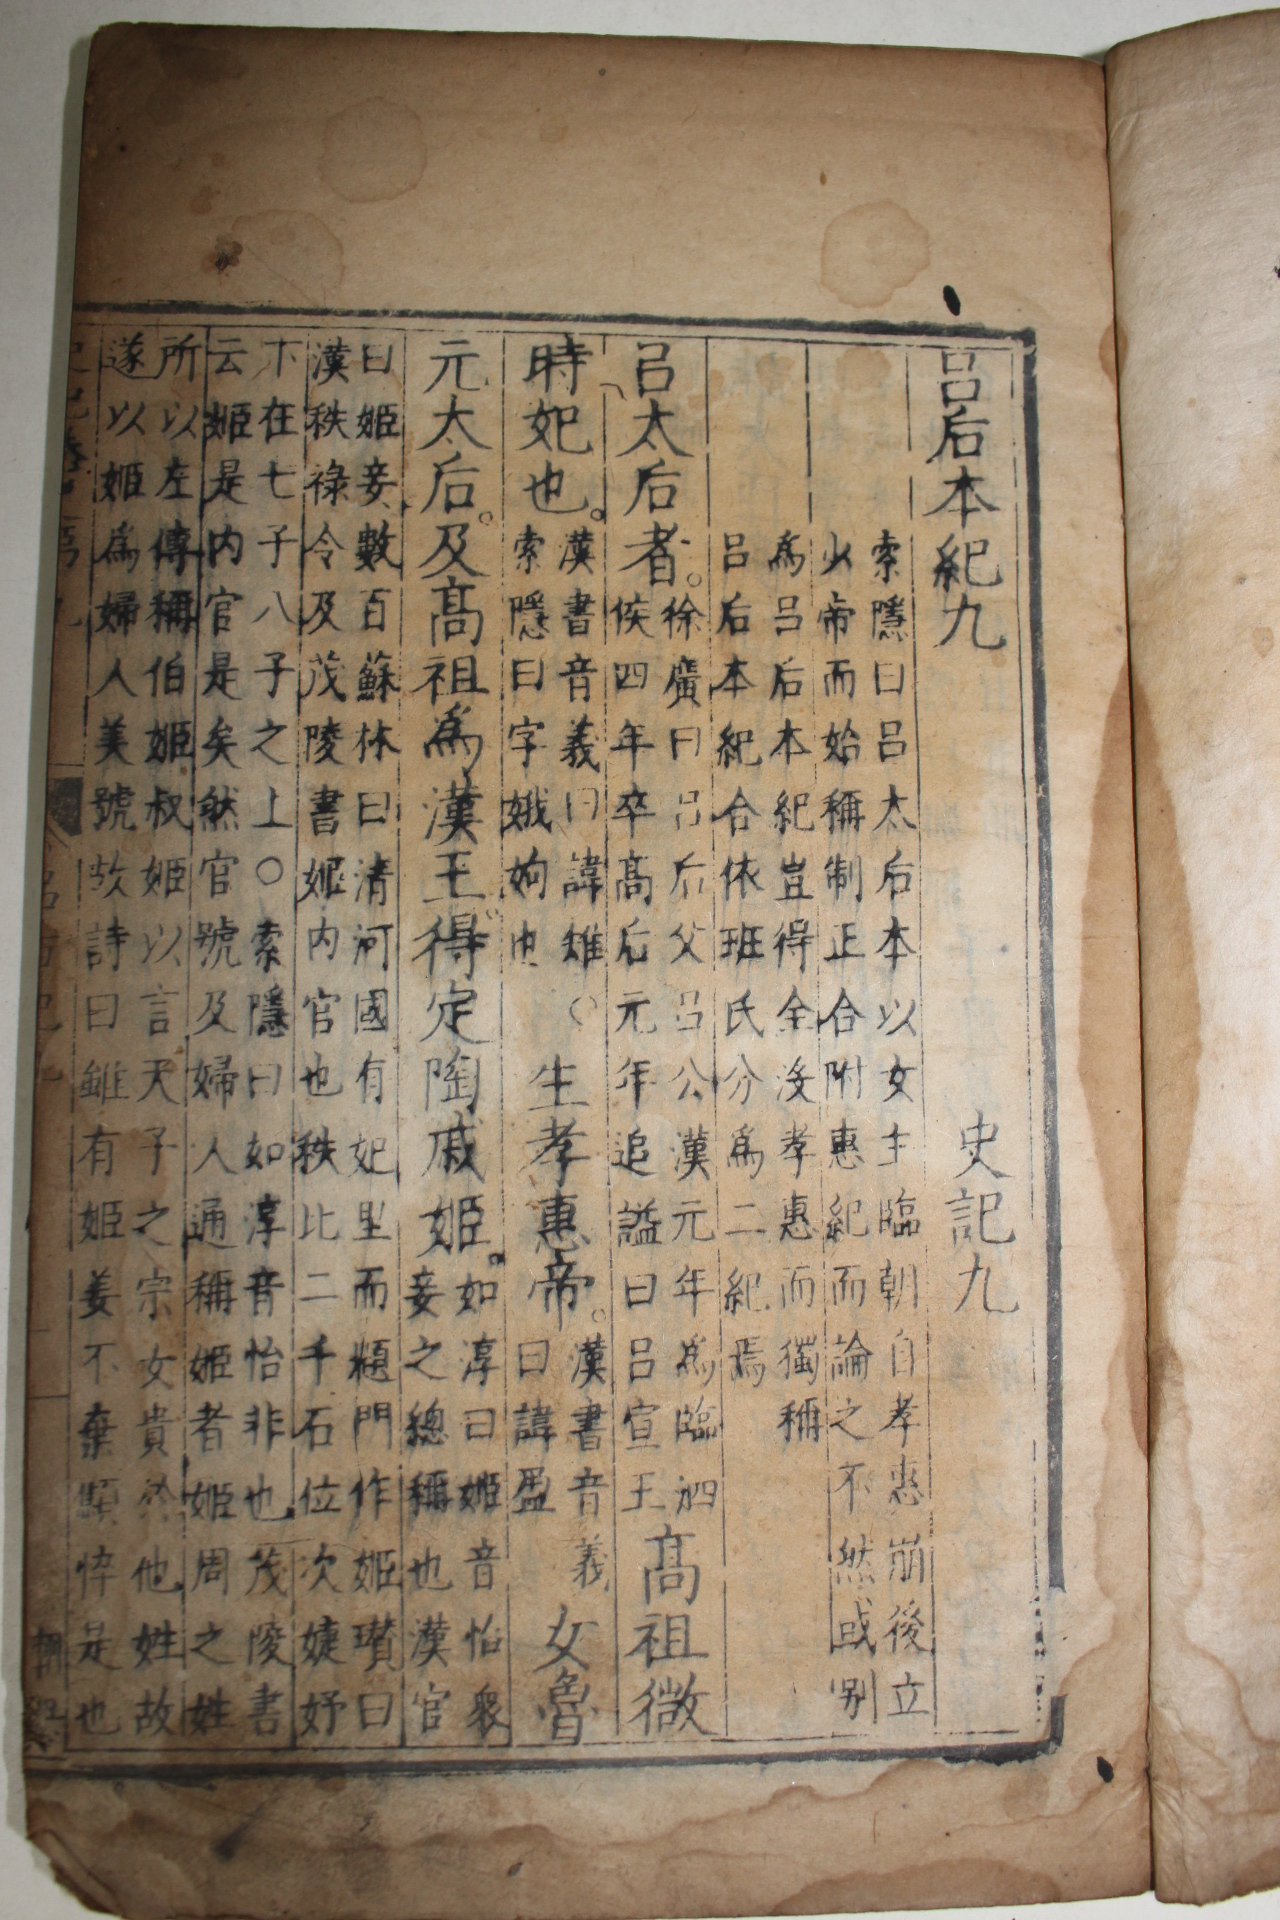 呂后本紀九　史記九
索隱曰呂太后本以女主臨朝自孝惠崩後立
少帝而始稱制正合附惠紀而論之不然或別
爲呂后本紀豈得全沒孝惠而獨稱
呂后本紀合依班氏分爲二紀焉
呂太后者。徐廣曰呂后父呂公漢元年爲臨泗
侯四年卒高后元年追謚曰呂宣王　高祖微
時妃也。漢書音義曰諱雉○
索隱曰字娥姁也　生孝惠帝。漢書音義
曰諱盈　女魯
元太后。及高祖爲漢王。得定陶戚姬。如淳曰姬音怡衆
妾之總稱也漢官
曰姬妾數百蘇林曰清河國有妃里而題門作姬瓚曰
漢秩祿令及茂陵書姬內官也秩比二千石位次婕妤
下在七子八子之上○索隱曰如淳音怡非也茂陵書
云姬是內官是矣然官號及婦人通稱姬者姬周之姓
所以左傳稱伯姬叔姬以言天子之宗女貴於他姓故
遂以姬爲婦人美號故詩曰雖有姬姜不棄顦悴是也